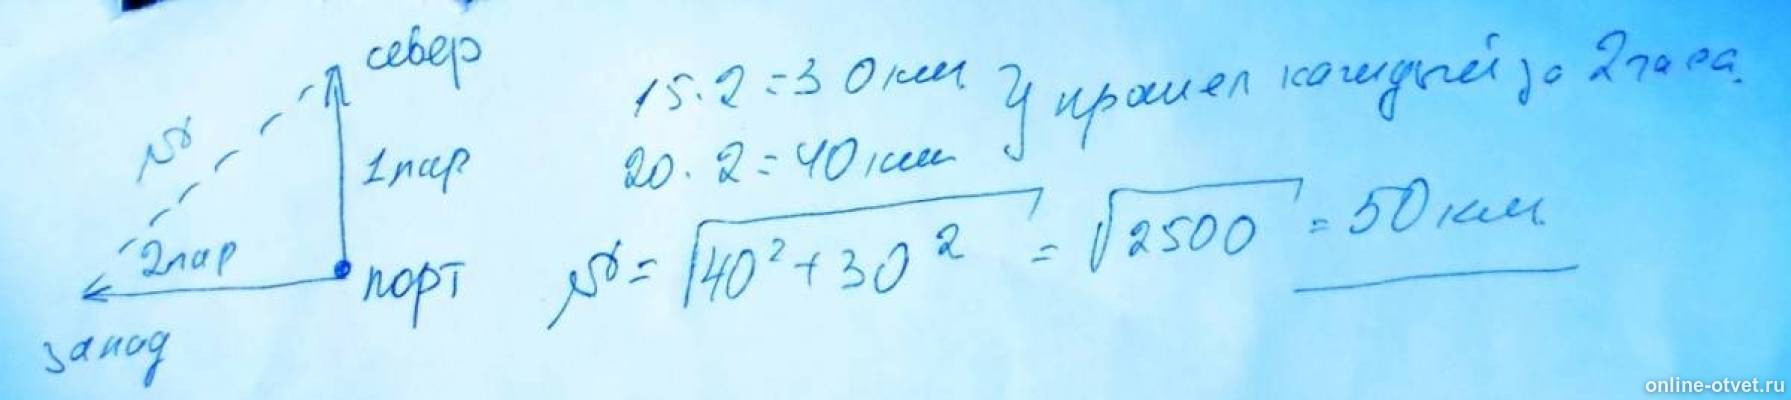 север
1 пар
2 пар
порт
запад
15·2=30 км } прошел каждый за 2 часа.
20·2=40 км
=√40²+30² = √2500 = 50 км
online-otvet.ru